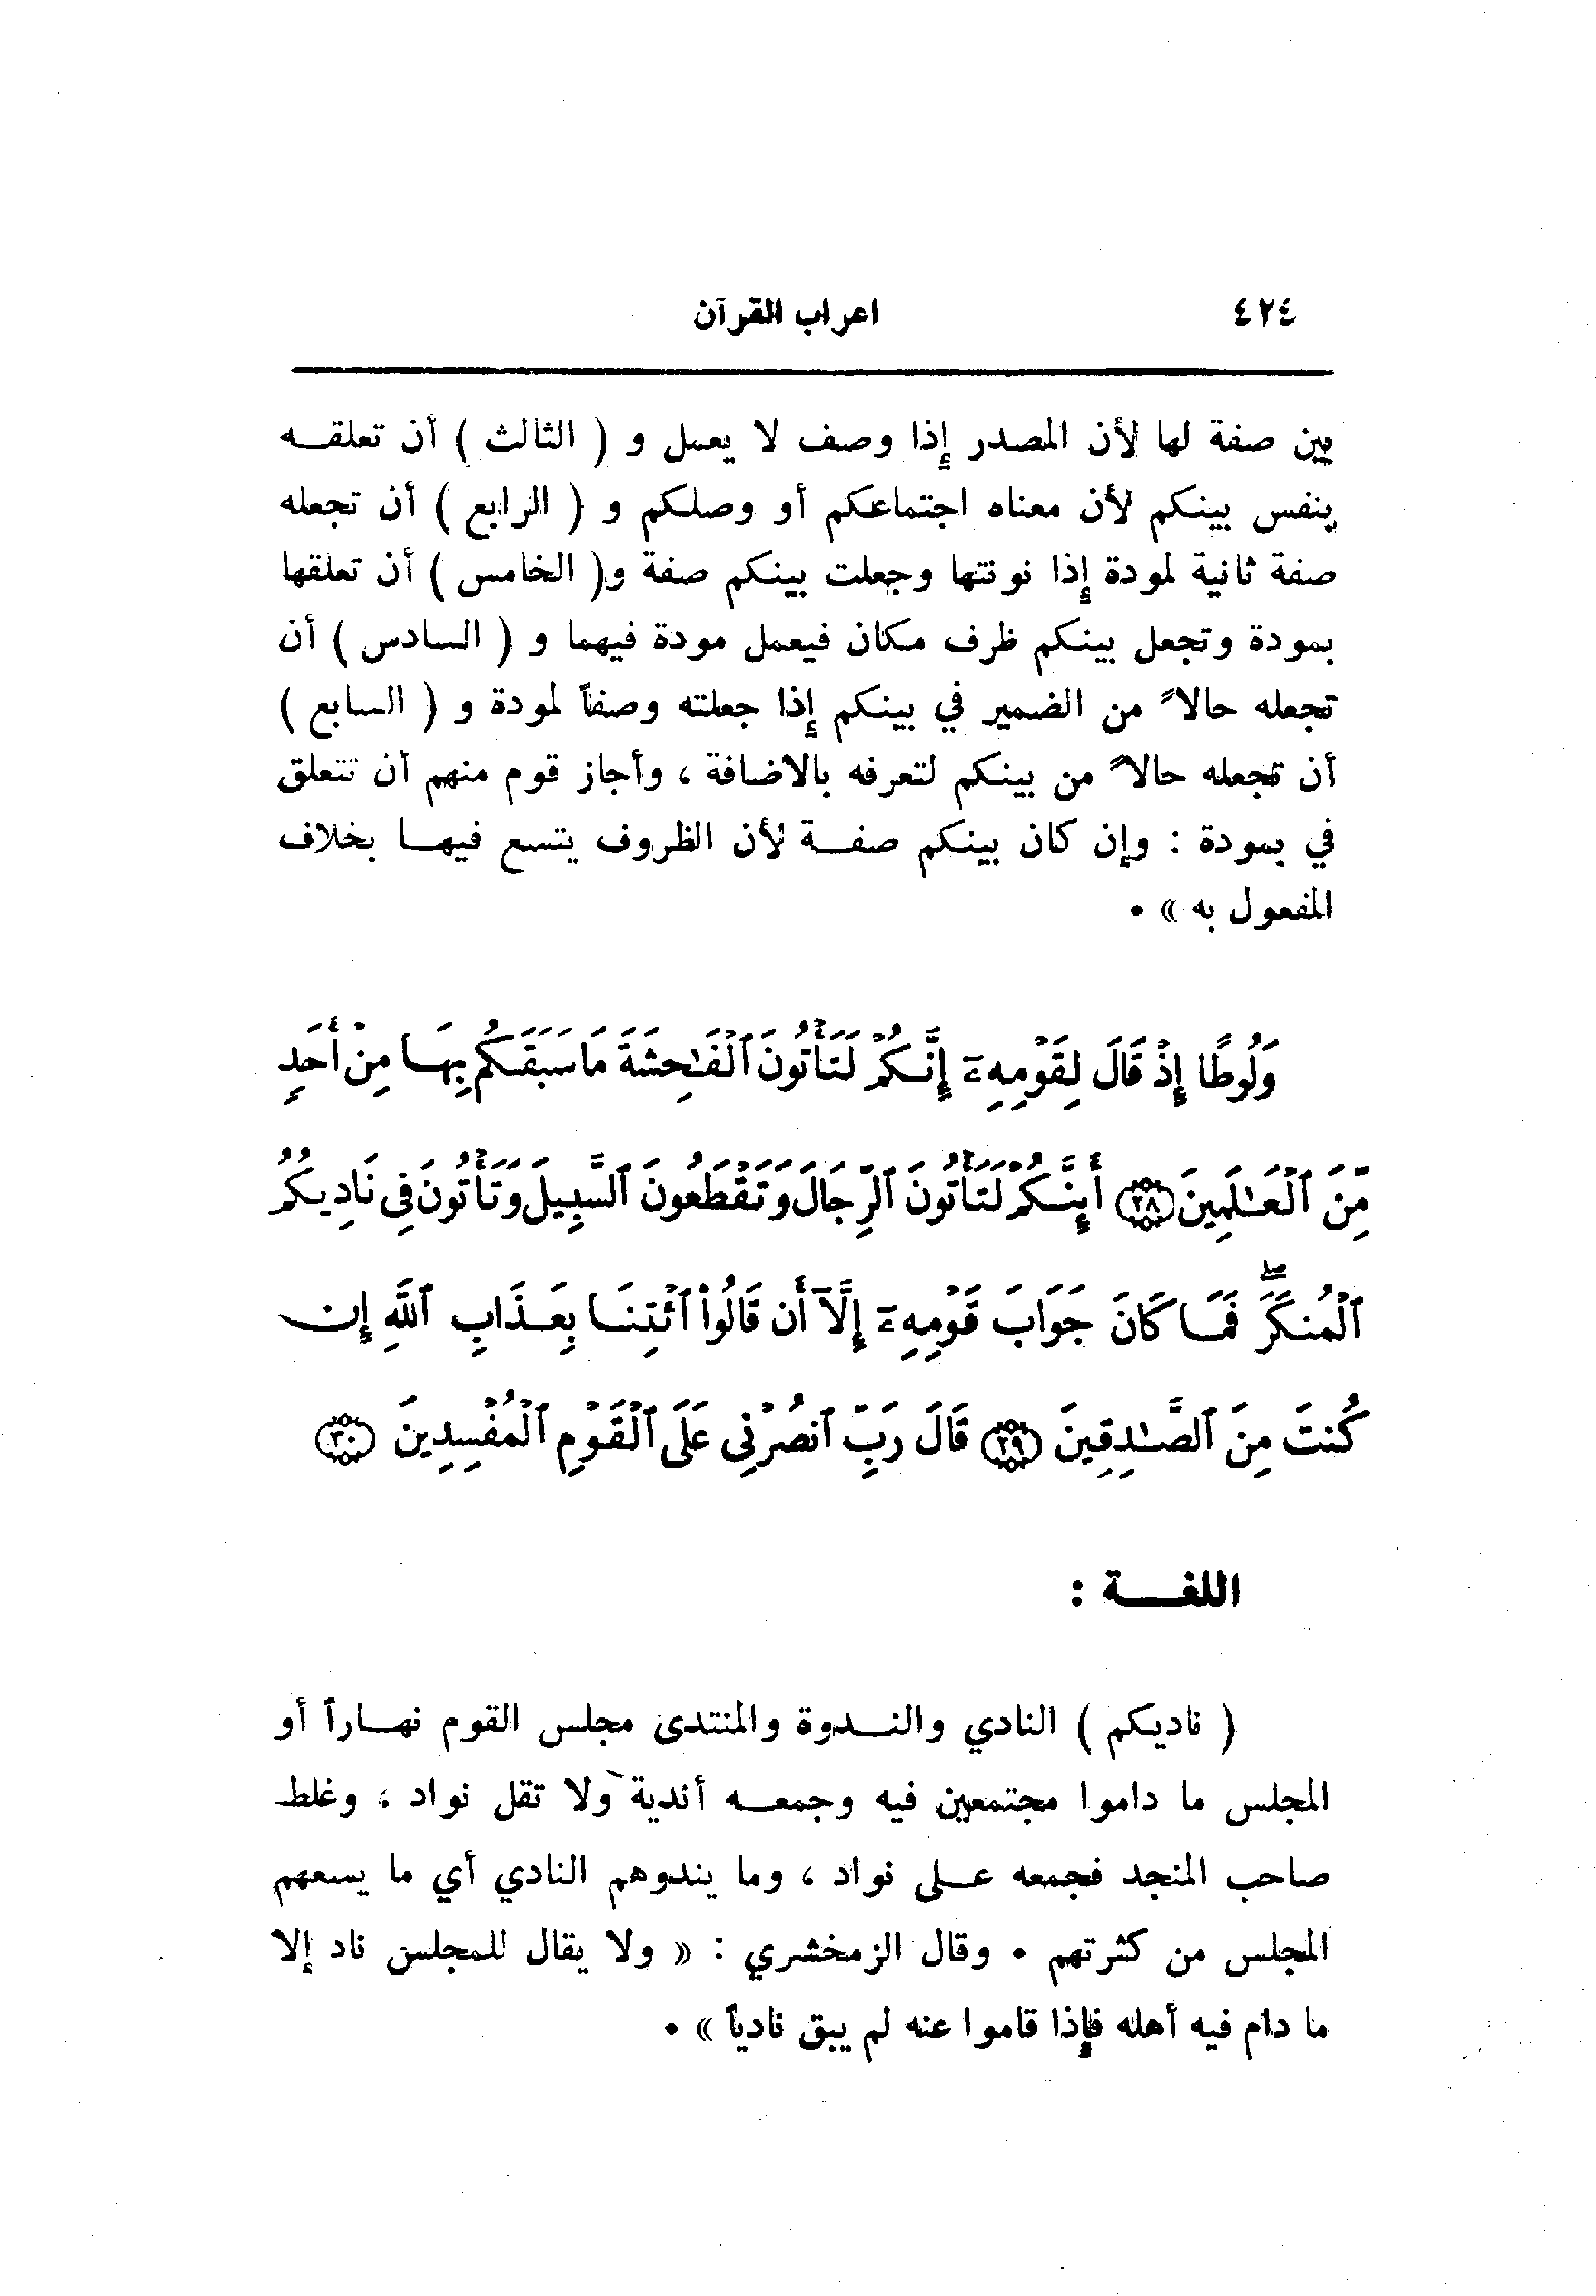 ٤٢٤
اعراب القرآن
بين صفة لها لأن المصدر إذا وصف لا يعمل و ( الثالث ) أن تعلقــه
بنفس بينكم لأن معناه اجتماعكم أو وصلكم و ( الرابع ) أن تجعله
صفة ثانية لمودة إذا نونتها وجعلت بينكم صفة و( الخامس ) أن تعلقها
بمودة وتجعل بينكم ظرف مكان فيعمل مودة فيهما و ( السادس ) أن
تجعله حالاً من الضمير في بينكم إذا جعلته وصفاً لمودة و ( السابع )
أن تجعله حالاً من بينكم لتعرفه بالاضافة ، وأجاز قوم منهم أن تتعلق
في بمودة : وإن كان بينكم صفــة لأن الظروف يتسع فيهــا بخلاف
المفعول به » ٠
وَلُوطًا إِذْ قَالَ لِقَوْمِهِۦٓ إِنَّكُمْ لَتَأْتُونَ ٱلْفَـٰحِشَةَ مَا سَبَقَكُم بِهَـا مِنْ أَحَدٍ
مِّنَ ٱلْعَـٰلَمِينَ ﴿٢٨﴾ أَئِنَّكُمْ لَتَأْتُونَ ٱلرِّجَالَ وَتَقْطَعُونَ ٱلسَّبِيلَ وَتَأْتُونَ فِى نَادِيكُمُ
ٱلْمُنكَرَ ۖ فَمَـا كَانَ جَوَابَ قَوْمِهِۦٓ إِلَّآ أَن قَالُوا۟ ٱئْتِنَـا بِعَـذَابِ ٱللَّهِ إِن
كُنتَ مِنَ ٱلصَّـٰدِقِينَ ﴿٢٩﴾ قَالَ رَبِّ ٱنصُرْنِى عَلَى ٱلْقَوْمِ ٱلْمُفْسِدِينَ ﴿٣٠﴾
اللغــــة :
( ناديكم ) النادي والنــدوة والمنتدى مجلس القوم نهــاراً أو
المجلس ما داموا مجتمعين فيه وجمعــه أندية ولا تقل نواد ، وغلط
صاحب المنجد فجمعه عــلى نواد ، وما يندوهم النادي أي ما يسعهم
المجلس من كثرتهم ٠ وقال الزمخشري : « ولا يقال للمجلس ناد إلا
ما دام فيه أهله فإذا قاموا عنه لم يبق نادياً » ٠